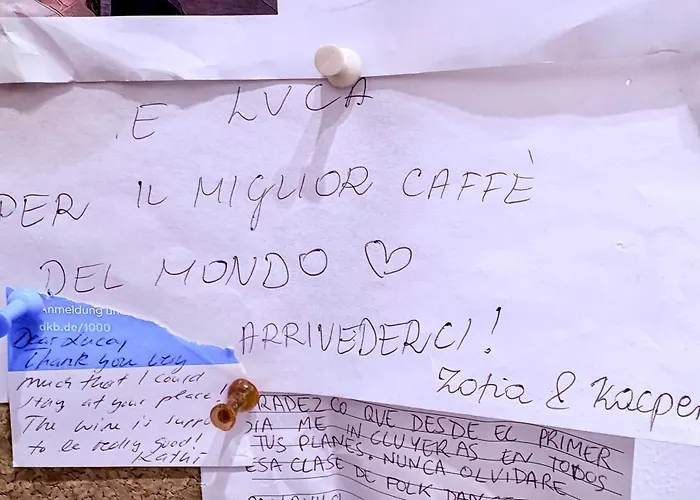 E LUCA
PER IL MIGLIOR CAFFÈ
DEL MONDO ♡
ARRIVEDERCI!
Zofia & Kacper
Anmeldung un
dkb.de/1000
Dear Luca,
Thank you very
much that I could
stay at your place!
The wine is supp
to be really good!
Kathi
RADEZCO QUE DESDE EL PRIMER
DIA ME INCLUYERAS EN TODOS
TUS PLANES. NUNCA OLVIDARE
ESA CLASE DE FOLK DAN